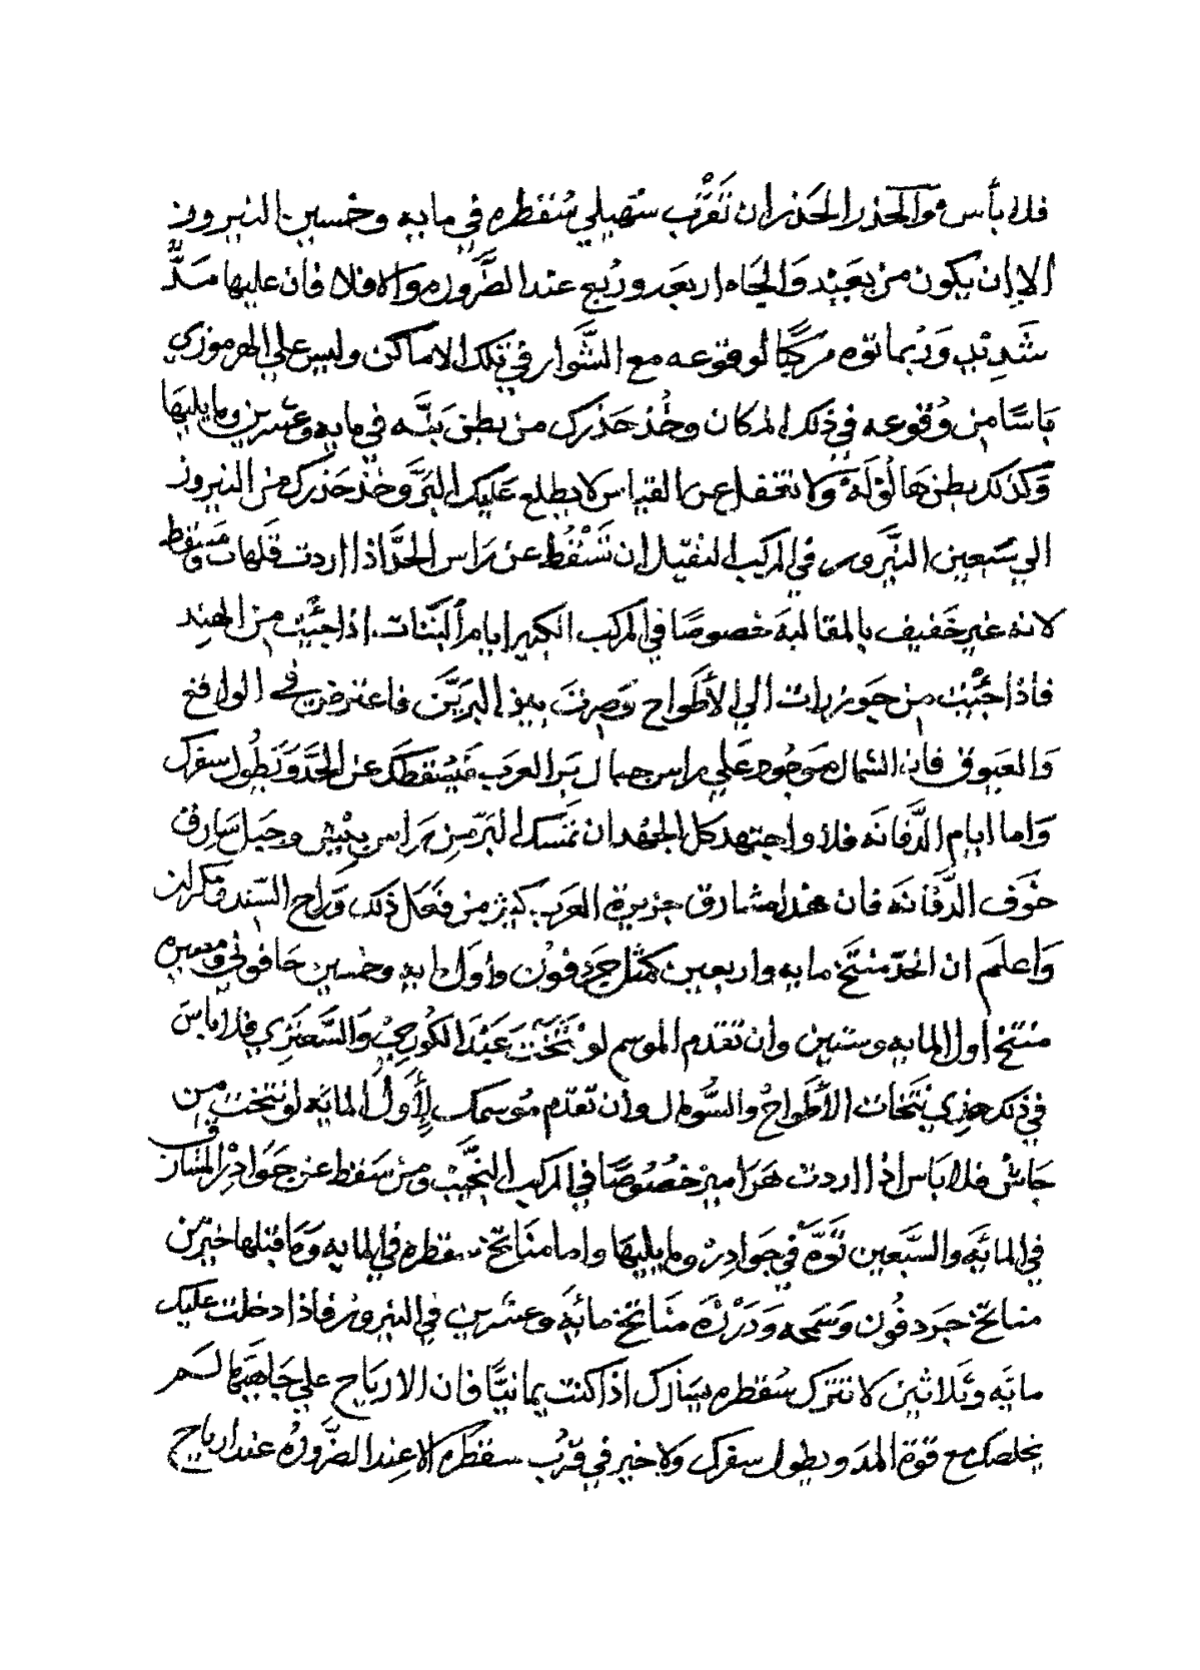 فلا بأس والحذر الحذر ان تَقْرَب سُهيلي سُقطره في مايه وخمسين النيروز
الا ان يكون من بعَيْد وَالجَاه اربعَه وربُع عند الضَّروره والا فلا فان عليها مَدٌّ
شَدِيْد وَرُبما توه مركبًا لوقوعه مع الشَّوار في تلك الاماكن وليس علي الهرموزي
بَاسًا من وُقوعه في ذلك المكان وخُذ حَذرك من بطن بَنَّه في مايه وعشرين وما يليهَا
وَكذلك بطنهَا لؤلؤه ولا تغفل عن القياس لا يطلع عَليك البَرَّ وخُذ حَذرك من النيروز
الي سَبعين النَّيروز في المركب الثقيل ان تَسْقُط عن راس الحَدّ اذا اردت قَلهات ومَسقط
لانه غير خَفيف بالمقالبَة خصوصًا في المركب الكبير ايام البَنَات اذا جيْت من الهِند
فاذا جئيْت من جَوزرات الي الأَطواح وصرتَ بين البَرَيَّن فاعترض في الواقع
وَالعيوق فان الشمال موجُود عَلي راس جمال بَر العرَب فيُسقطك عن الحَدّ وَيَطُول سفرك
وَاما ايام الدَّفانَه فلا واجتهد كل الجهُد ان تمَسك البَرّ من راس بيْش وجبَل سَارق
خَوف الدَّفانَه فان هذا مشارق جزيرة العرَب كثير من فَعَل ذلك وَراح السّند ومكران
وَاعلَم ان الحدّ منتَخ مايه واربعين كمثل جَرد فُون واول مايه وخمسين حَافوني ومصيره
منتخ اول المايه وستين وان تقدم الموسم لوْ نَتخْتَ عَبْد الكورجيْ وَالسَّعتَرِي فلا باسَ
في ذلك هذي نتخَات الأَطواحْ والسُّومال وان تقدّم مُوسمك لِأَولِ المائه لو نتخت من
جَاش فلا بَاس اذا اردت هَرَاميز خصُوصًا في المركب النجيْب ومن سَقط عن جَوادِر المشارق
في المائَه والسَّبعين تَوَّه في جَوادِرْ وما يليهَا واما منَاتخ سقطره في المايه وَمَا قبلها خير من
مناتخ جَرد فُون وَسَمحه وَدَرْزَه منَاتخ مائه وعشرين في النيروز فاذا دخلت عليك
مايَه وثَلاثين لا تترك سُقطره يسَارك اذا كنت يمانيًّا فان الارياح علي جَاهيّها لسَم
يخلصك مع قوّة المدّ ويطول سفرك ولا خير في قرُب سقطره الا عِند الضَّرورُه عند ارياح